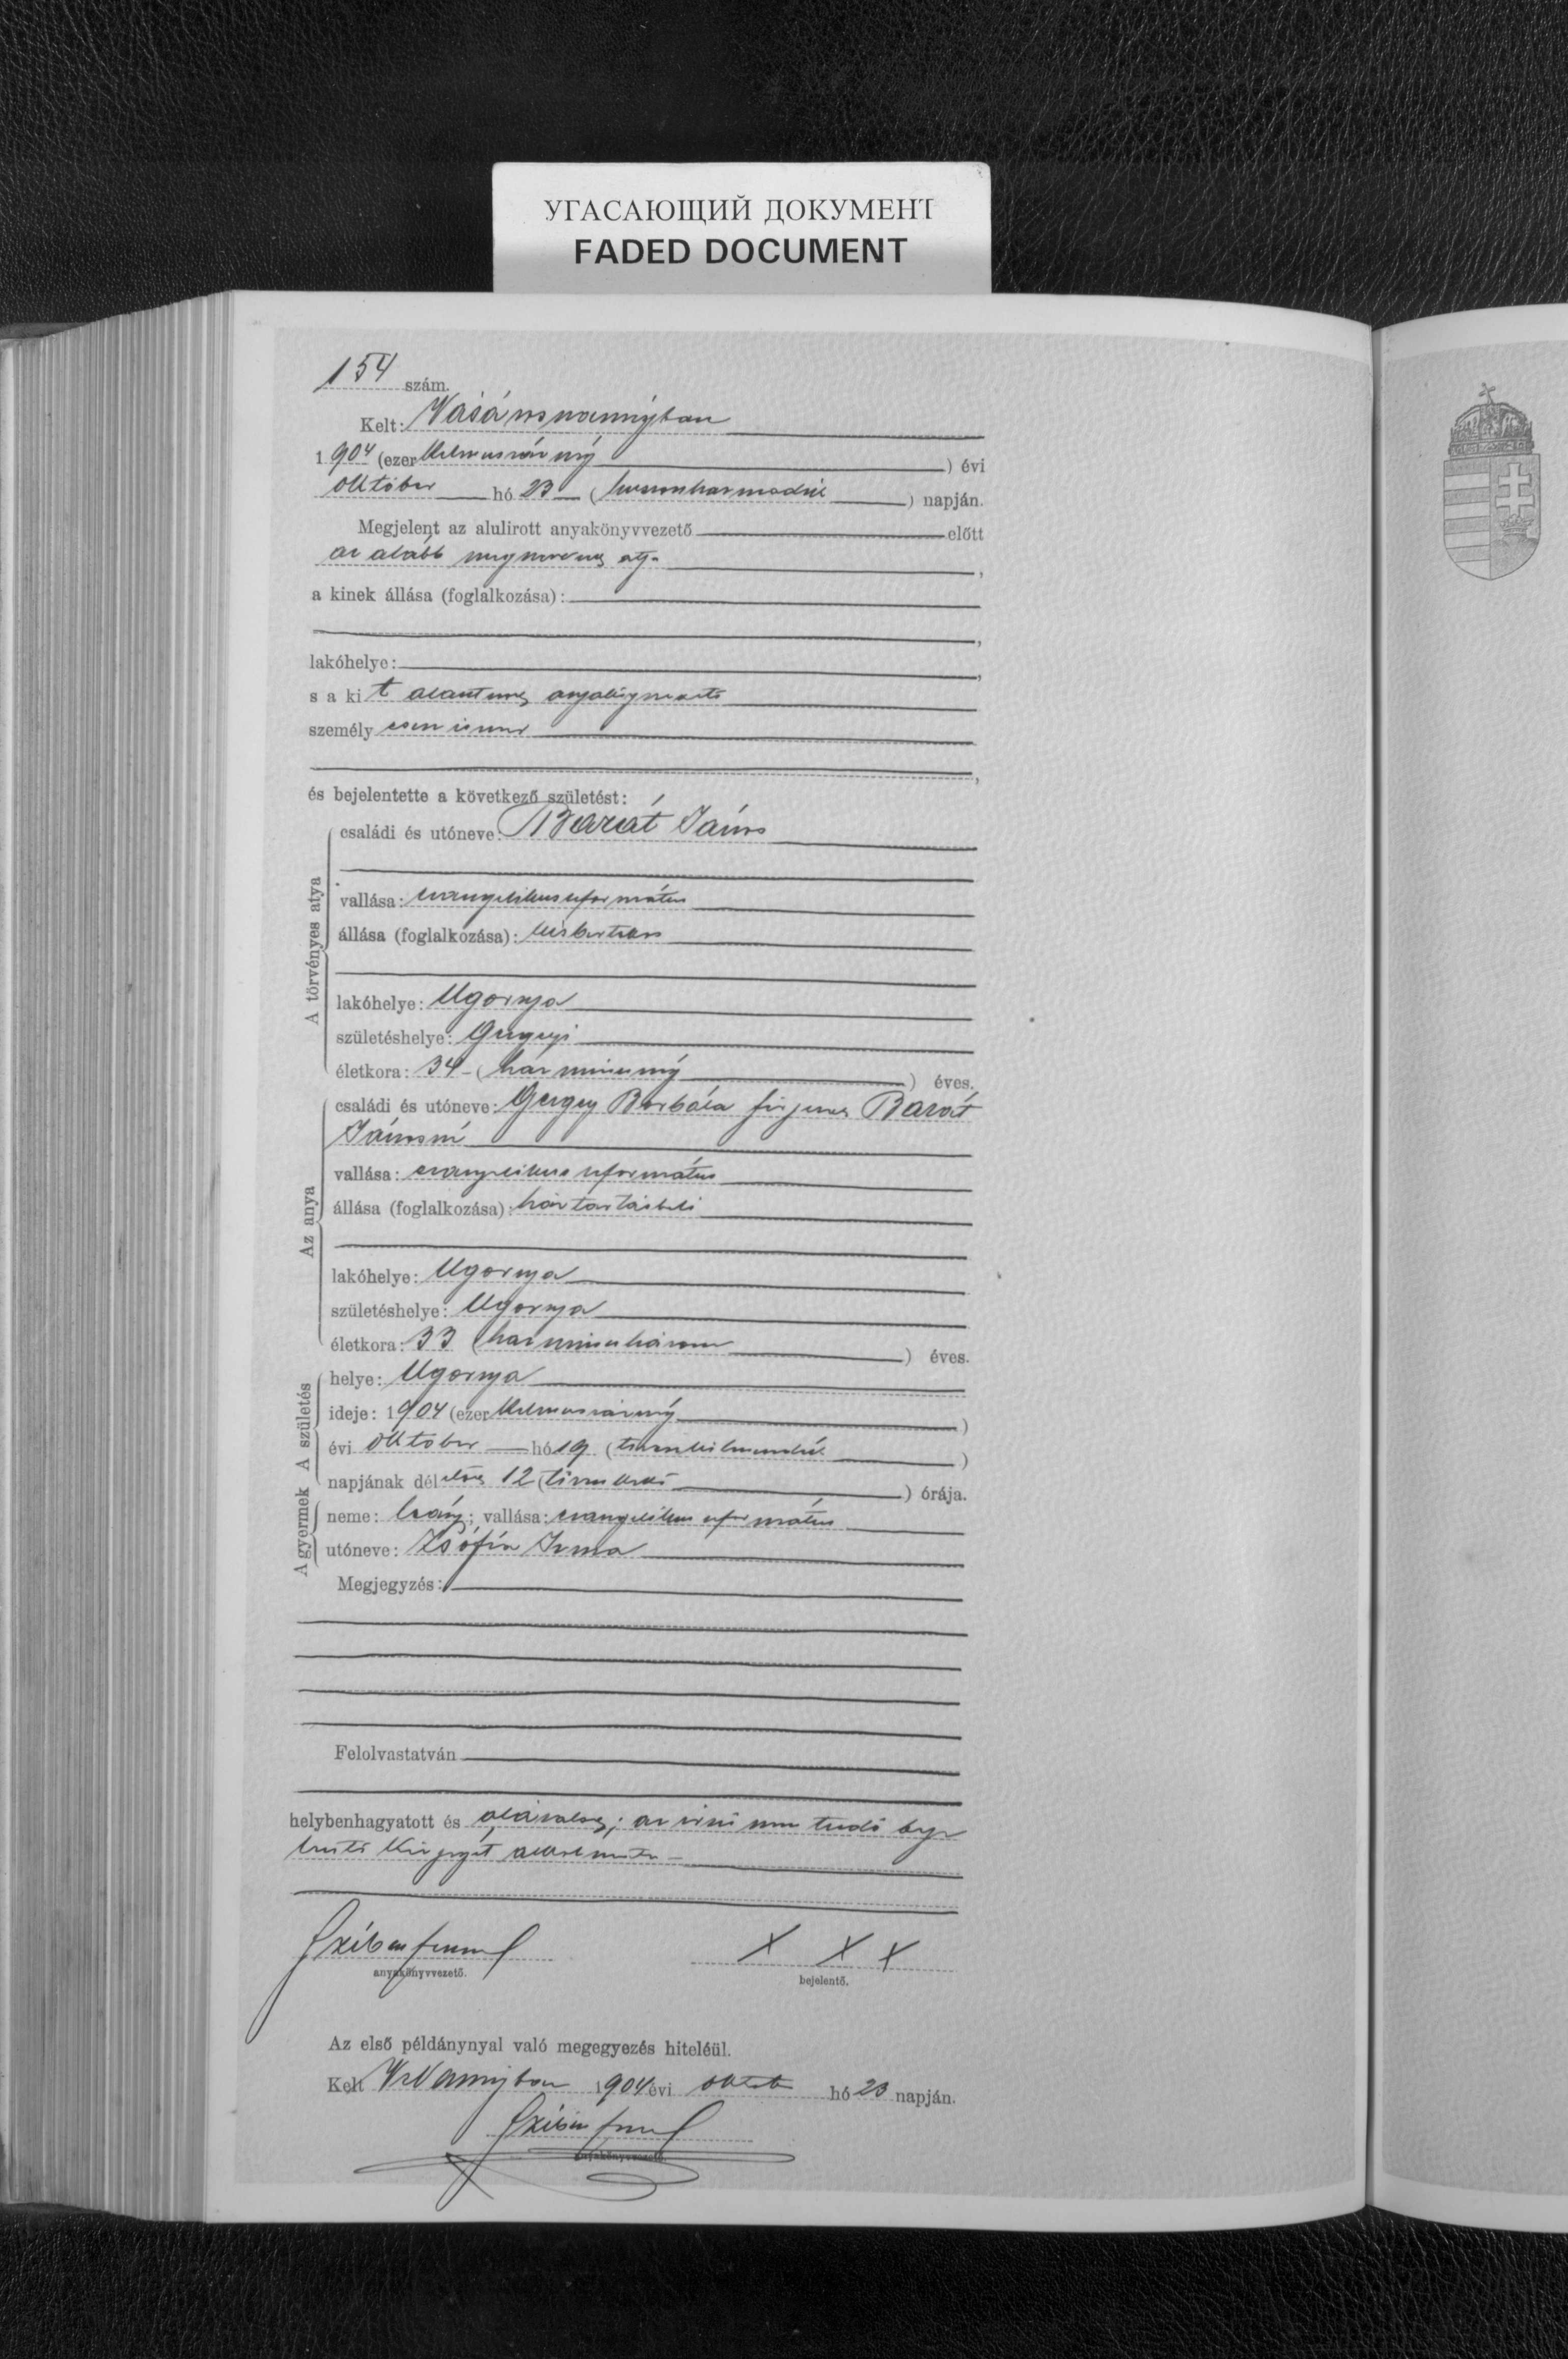 УГАСАЮЩИЙ ДОКУМЕНТ
FADED DOCUMENT
154 szám.
Kelt: Vásárosnaményban
1904 (ezerkilencszáznégy) évi
október hó 23 (huszonharmadik) napján.
Megjelent az alulirott anyakönyvvezető előtt
az alább megnevezett atya,
a kinek állása (foglalkozása):
lakóhelye:
s a kit alantirott anyakönyvvezető
személyesen ismer,
és bejelentette a következő születést:
A törvényes atya
családi és utóneve: Barát János
vallása: evangelikus református
állása (foglalkozása): kisbirtokos
lakóhelye: Ugornya
születéshelye: Gergelyi
életkora: 34 (harmincnégy) éves.
Az anya
családi és utóneve: Gergely Borbála férjezett Barát
Jánosné
vallása: evangelikus református
állása (foglalkozása): háztartásbeli
lakóhelye: Ugornya
születéshelye: Ugornya
életkora: 33 (harminchárom) éves.
A születés
helye: Ugornya
ideje: 1904 (ezerkilencszáznégy)
évi október hó 19 (tizenkilencedik)
napjának délelőtt 12 (tizenkettő) órája.
A gyermek
neme: leány; vallása: evangelikus református
utóneve: Zsófia Irma
Megjegyzés:
Felolvastatván
helybenhagyatott és aláíratott; az írni nem tudó beje
lentő kézjegyét
anyakönyvvezető.
X X X
bejelentő.
Az első példánynyal való megegyezés hiteléül.
Kelt V.Naményban 1904 évi október hó 23 napján.
anyakönyvvezető.